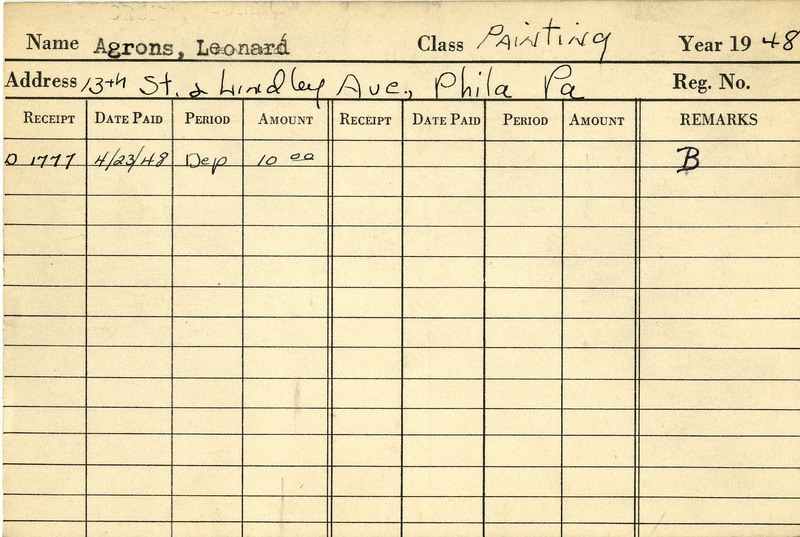 Name Agrons, Leonard Class PAINTING Year 19 48
Address 13th St. & Lindley Ave., Phila Pa Reg. No.
RECEIPT DATE PAID PERIOD AMOUNT RECEIPT DATE PAID PERIOD AMOUNT REMARKS
D 1777 4/23/48 Dep 10 00 B